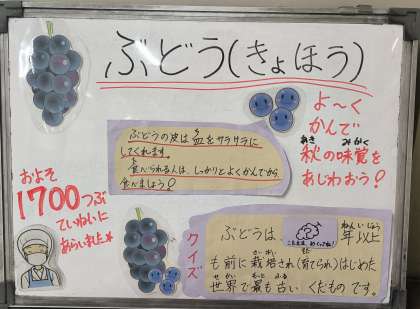 ぶどう(きょほう)
よ〜く
かんで
あき みかく
秋の味覚を
あじわおう!
ぶどうの皮は血をサラサラに
してくれます。
食べられる人は、しっかりとよくかんで
食べましょう!
およそ
1700つぶ
ていねいに
あらいました
クイズ
ぶどうは、
ねん いじょう
年以上
まえ さいばい
も前に栽培され(育てられ)はじめた
せかい もっと ふる
世界で最も古い くだものです。